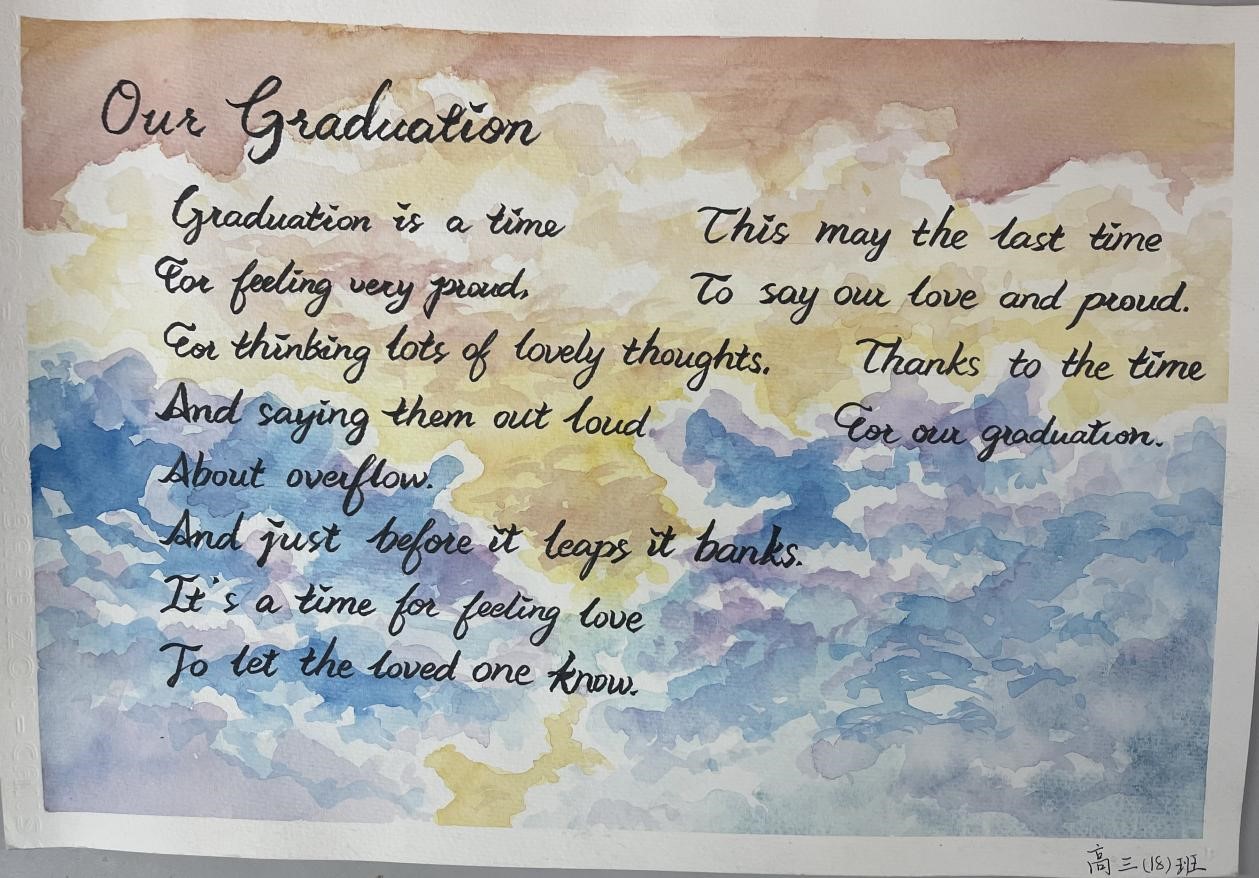 Our Graduation
Graduation is a time
For feeling very proud,
For thinking lots of lovely thoughts.
And saying them out loud
About overflow.
And just before it leaps it banks.
It's a time for feeling love
To let the loved one know.
This may the last time
To say our love and proud.
Thanks to the time
For our graduation.
高三(18)班